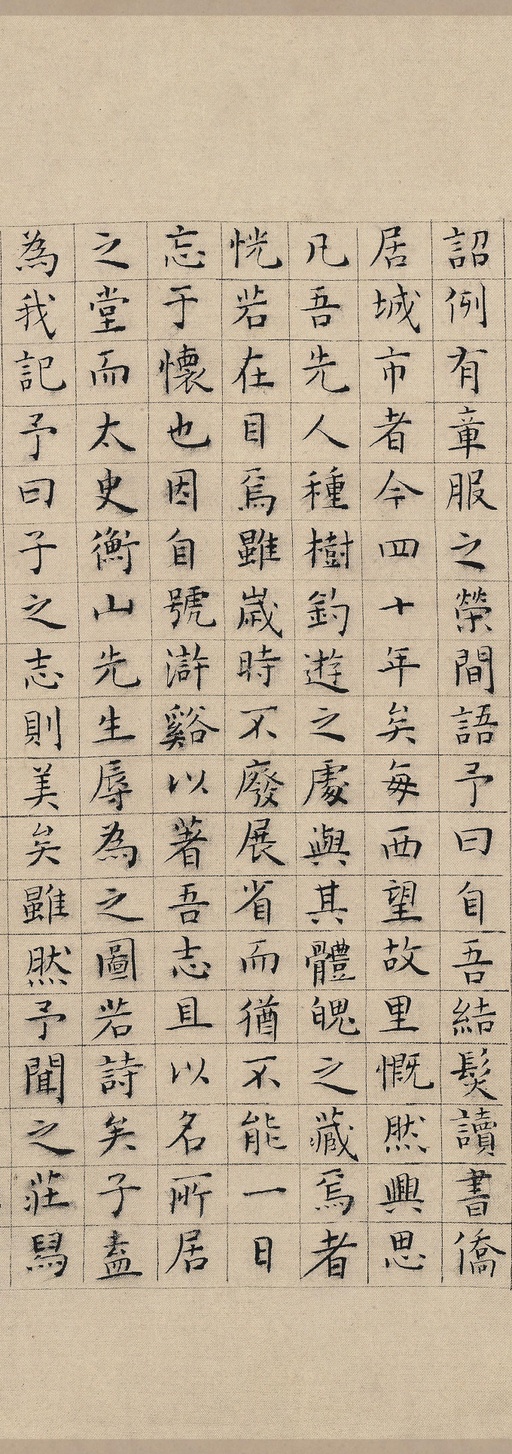 詔例有章服之榮間語予曰自吾結髮讀書僑
居城市者今四十年矣每西望故里慨然興思
凡吾先人種樹釣遊之處與其體魄之藏焉者
恍若在目焉雖歲時不廢展省而猶不能一日
忘于懷也因自號滸谿以著吾志且以名所居
之堂而太史衡山先生辱為之圖若詩矣子盍
為我記予曰子之志則美矣雖然予聞之莊舄